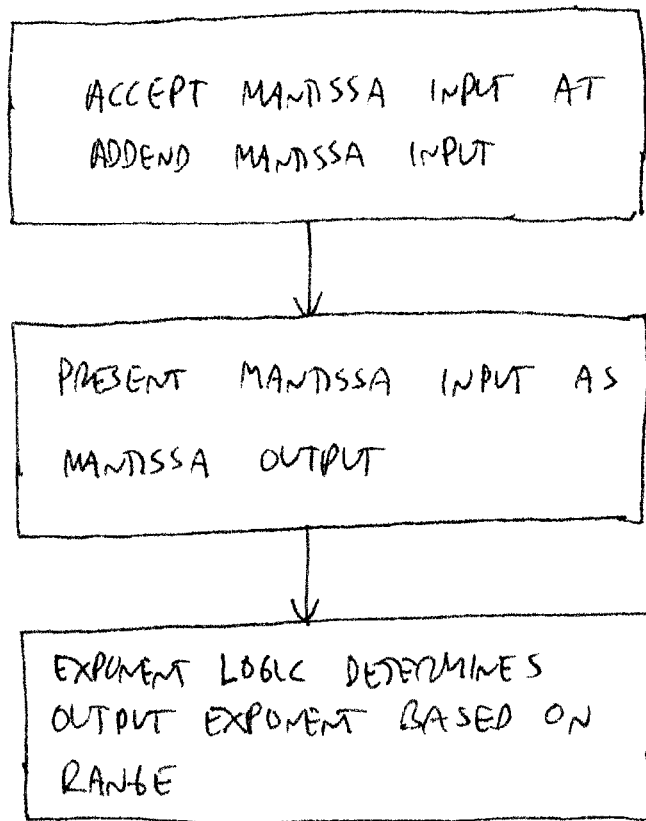 ACCEPT MANTISSA INPUT AT
ADDEND MANTISSA INPUT
PRESENT MANTISSA INPUT AS
MANTISSA OUTPUT
EXPONENT LOGIC DETERMINES
OUTPUT EXPONENT BASED ON
RANGE